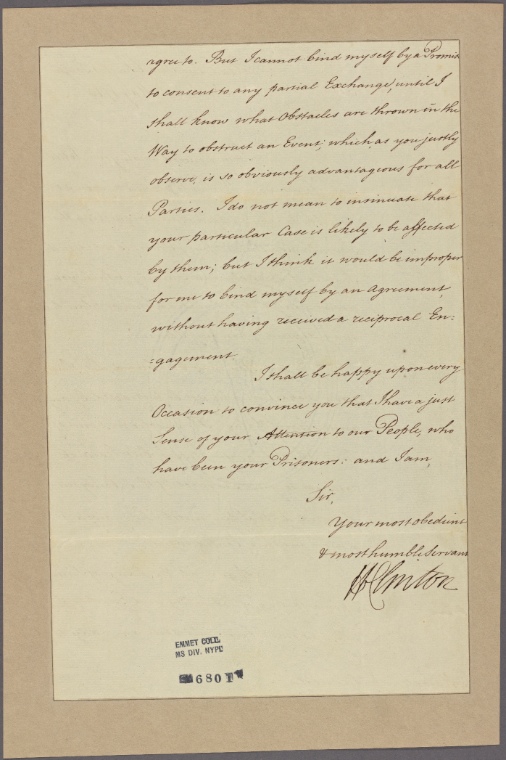 agree to. But I cannot bind myself by a Promise
to consent to any partial Exchange, until I
shall know what Obstacles are thrown in the
Way to obstruct an Event, which as you justly
observe, is so obviously advantageous for all
Parties. I do not mean to insinuate that
your particular Case is likely to be affected
by them; but I think it would be improper
for me to bind myself by an Agreement
without having received a reciprocal En:
:gagement
I shall be happy upon every
Occasion to convince you that I have a just
Sense of your Attention to our People, who
have been your Prisoners: and I am,
Sir,
Your most obedient
& most humble Servant
H Clinton
EMMET COLL.
MS DIV. NYPL
6801